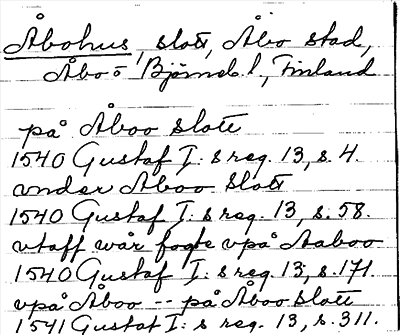 Åbohus, slott, Åbo stad,
Åbo o Björneb. l., Finland
på Åboo slott
1540 Gustaf I:s reg. 13, s. 4.
vnder Åboo Slott
1540 Gustaf I:s reg. 13, s. 58.
vtaff wår fogte vpå Aaboo
1540 Gustaf I:s reg. 13, s. 171.
vpå Åboo -- på Åboo Slott
1541 Gustaf I:s reg. 13, s. 311.